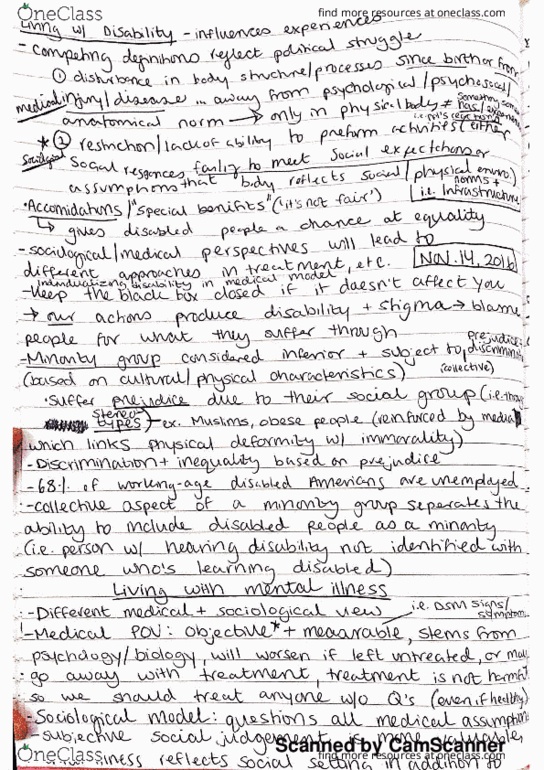 OneClass
find more resources at oneclass.com
Living w/ Disability - influences experiences
- competing definitions reflect political struggle
① disturbance in body structure/processes since birth or from
medical injury/disease ... away from psychological/psychosocial/
anatomical norm → only in physical body ≠
* ② restriction/lack of ability to preform activities/either
Sociological
Social responses failing to meet social expectations or
assumptions that body reflects social/physical enviro.)
norms +
i.e. Infrastructure
• Accomidations/"special benifits" ('it's not fair')
↳ gives disabled people a chance at equality
- sociological/medical perspectives will lead to
NOV. 14, 2016
different approaches in treatment, etc.
individualizing disability in medical model
- Keep the black box closed if it doesn't affect you
→ our actions produce disability + stigma → blame
people for what they suffer through
prejudice/
- Minority group considered inferior + subject to discrimin
(collective)
(based on cultural/physical characteristics)
• Suffer prejudice due to their social group (i.e.
stereo-
types) - ex. Muslims, obese people (reinforced by media
which links physical deformity w/ immorality)
- Discrimination + inequality based on prejudice
- 68% of working-age disabled Americans are unemployed
- collective aspect of a minority group seperates the
ability to include disabled people as a minority
(i.e. person w/ hearing disability not identified with
someone who's learning disabled)
Living with mental illness
- Different medical + sociological view
i.e. DSM signs/
symptom
- Medical POV: objective* + measurable, stems from
psychology/biology, will worsen if left untreated, or may
go away with treatment, treatment is not harmful
so we should treat anyone w/o Q's (even if healthy)
- Sociological model: questions all medical assumptions
- subjective social judgement is more valuable,
illness reflects social setting in addition to
Scanned by CamScanner
OneClass
find more resources at oneclass.com